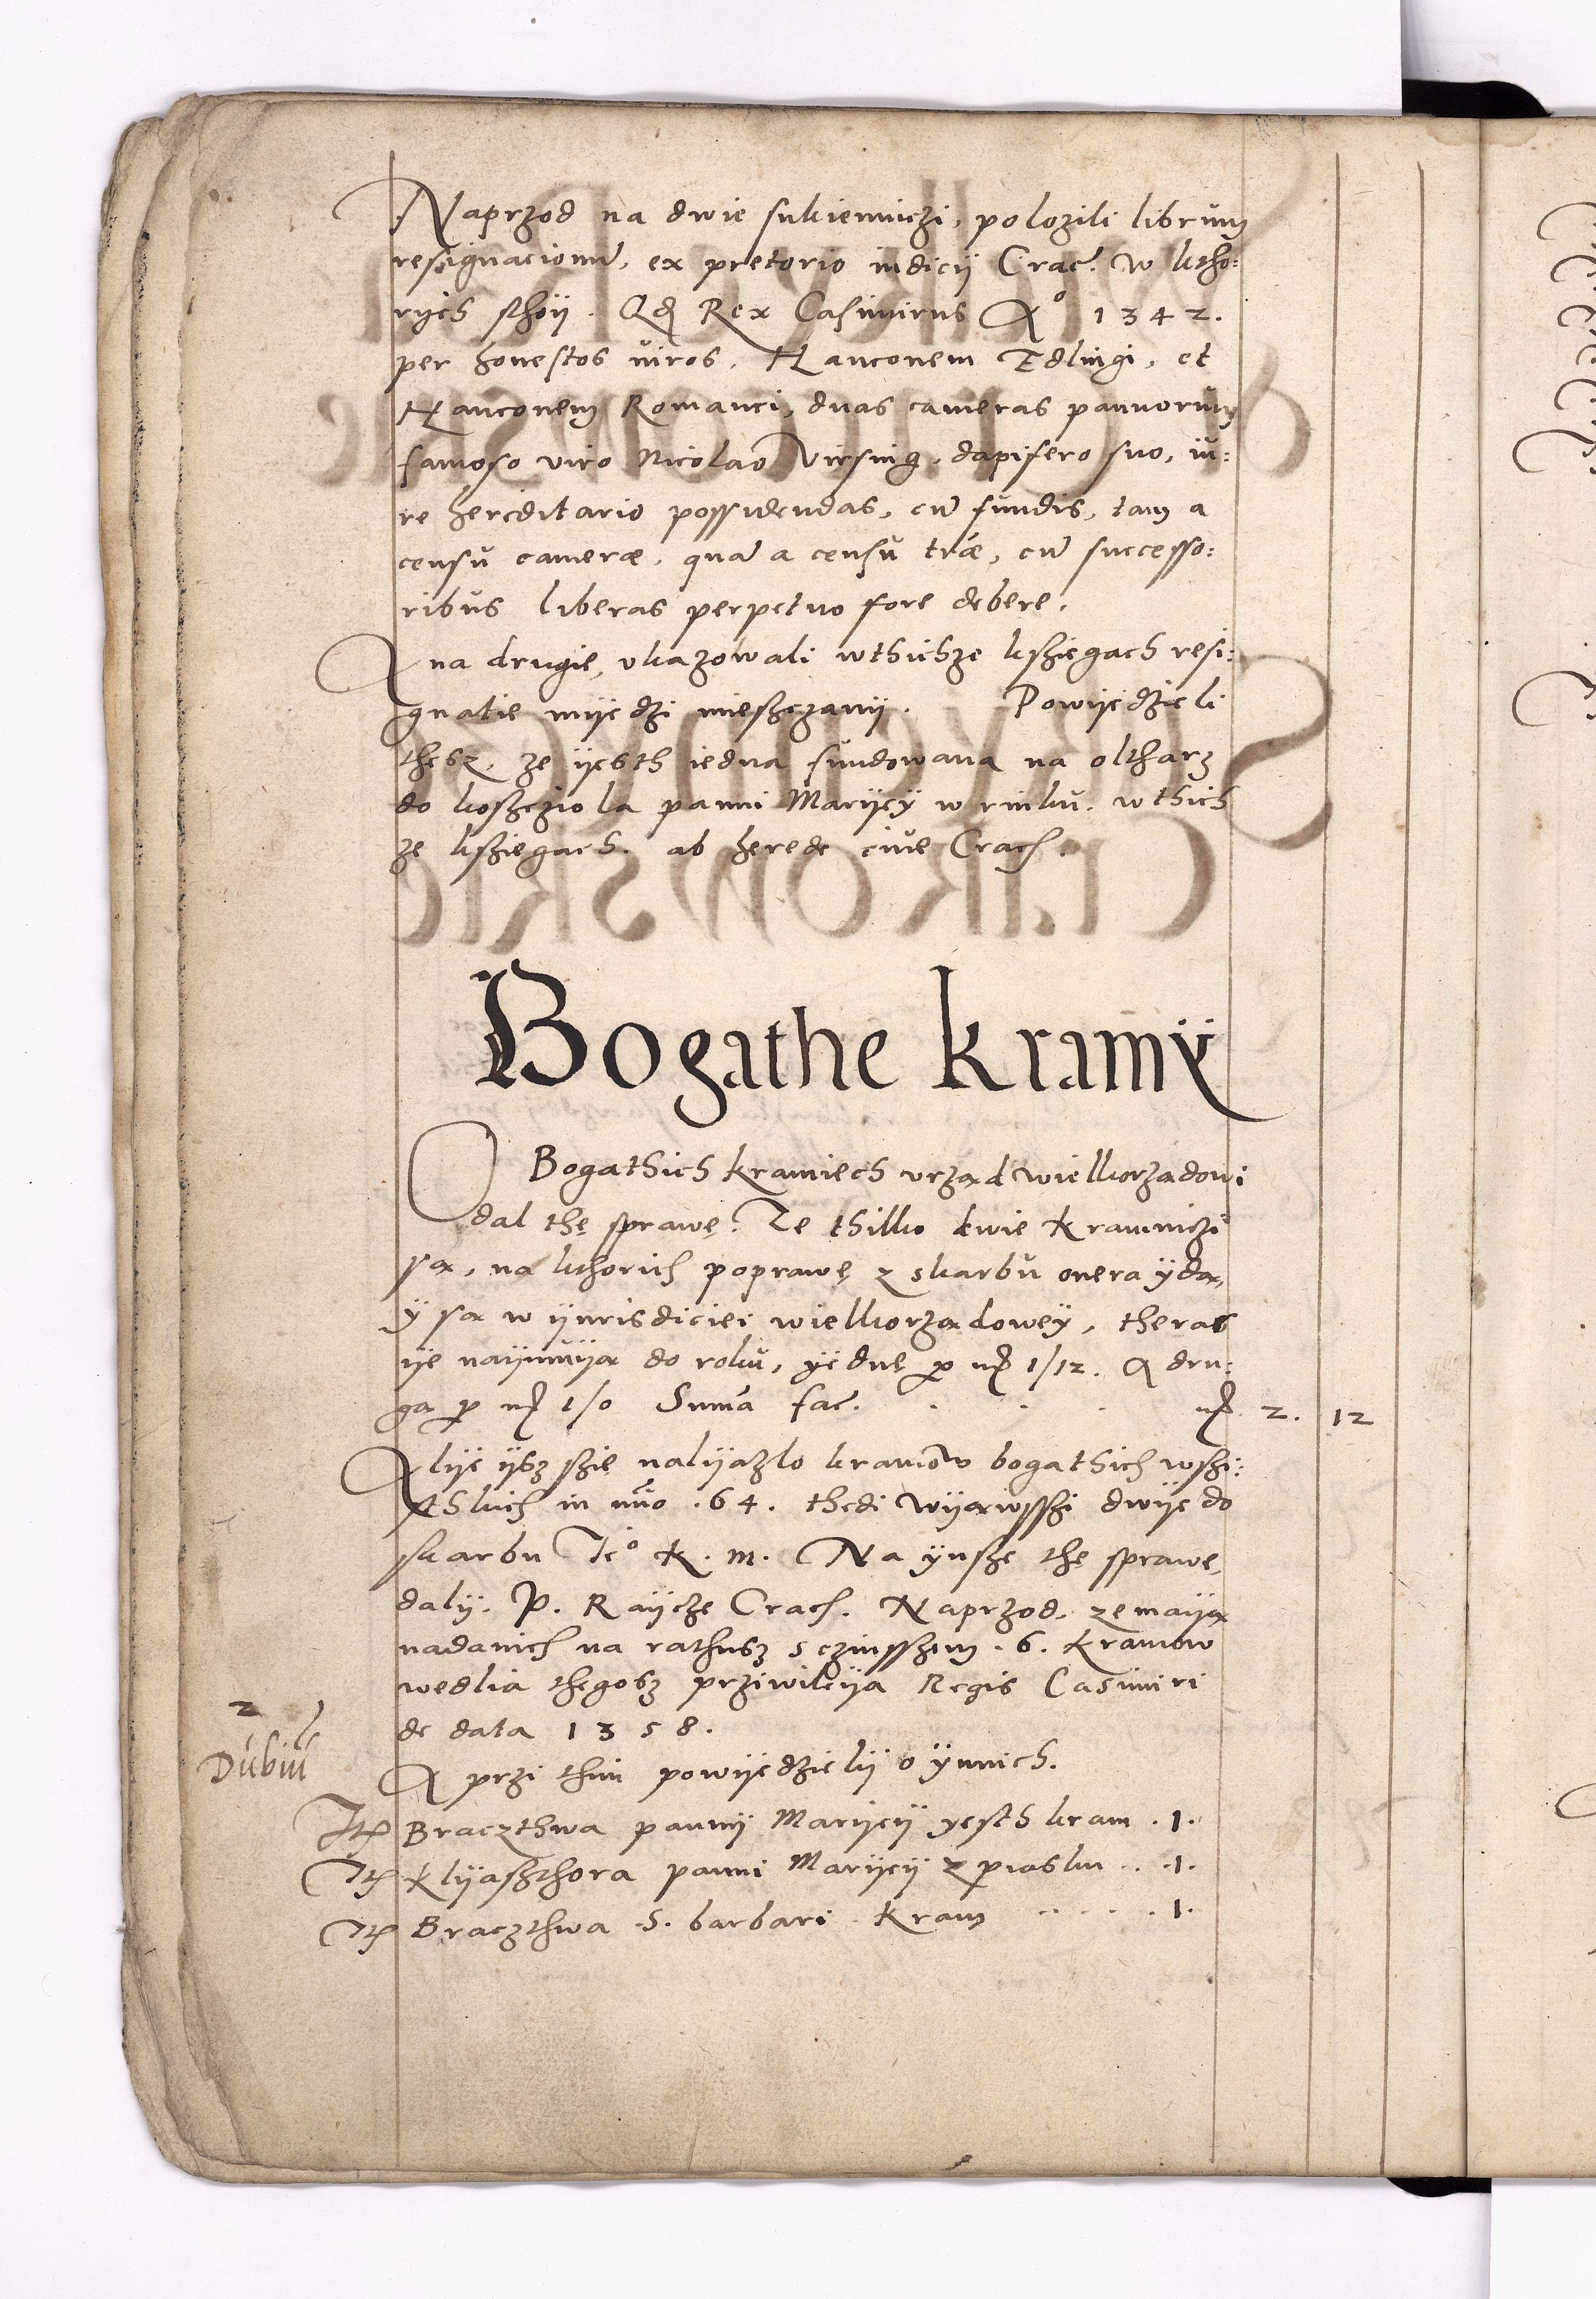 Naprzod na dwie sukienniczi, polozili librum
resignacionu, ex pretorio iudicij Crac. w ktho:
rÿch sthoÿ. Qd Rex Casimirus Aº 1342.
per honestos viros, Hanconem Edlingi, et
Hanconem Romanci, duas cameras pannorum
famoso viro Nicolao Virsing, dapifero suo, iu:
re hereditario possidendas, cu fundis, tam a
censu cameræ, qua a censu træ, cu successo:
ribus liberas perpetuo fore debere.
A na drugie, vkazowali wthichze kxiegach resi:
gnatie mÿedzi miesczanÿ. Powÿedzieli
thesz, ze ÿesth iedna fundowana na oltharz
do kosczio la panni Marÿeÿ w rinku, wthich
ze kxiegach. ab herede ciue Crac.
Bogathe kramÿ
O Bogathich kramiech vrzad wielkorzadowi
dal thę sprawę. Ze thilko dwie kramniczi
są, na kthorich poprawę z skarbu onera ÿdą,
ÿ są w ÿurisdiciei wielkorządoweÿ, theraz
ÿe naÿmuÿą do roku, ÿednę p 1/12. A dru:
gą p 1/0 Suma fac. . . . 2. 12
Alÿe ÿsz szię nalÿazlo kramow bogathich wszi:
sthkich in uno .64. thedi wÿąwsszi dwÿe do
skarbu Jeº K. M. Na ÿnsze thę sprawę
dalÿ. P. Raÿcze Crac. Naprzod, ze maÿą
nadanich na rathusz s czinsszem .6. kramow
wedlia thegosz prziwileÿa Regis Casimiri
de data 1358.
2
Dubiu
A przi thim powÿedzielÿ o ÿnnich.
Jt Braczthwa pannÿ Marÿeÿ ÿesth kram .1.
Jt Klÿaszthora panni Marÿeÿ z piasku . . .1.
Jt Braczthwa .S. barbari kram . . . . .1.